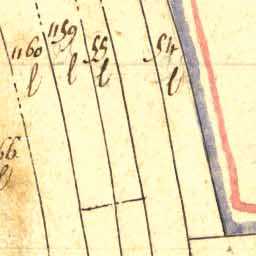 1160
l
1159
l
55
l
54
l
66
l